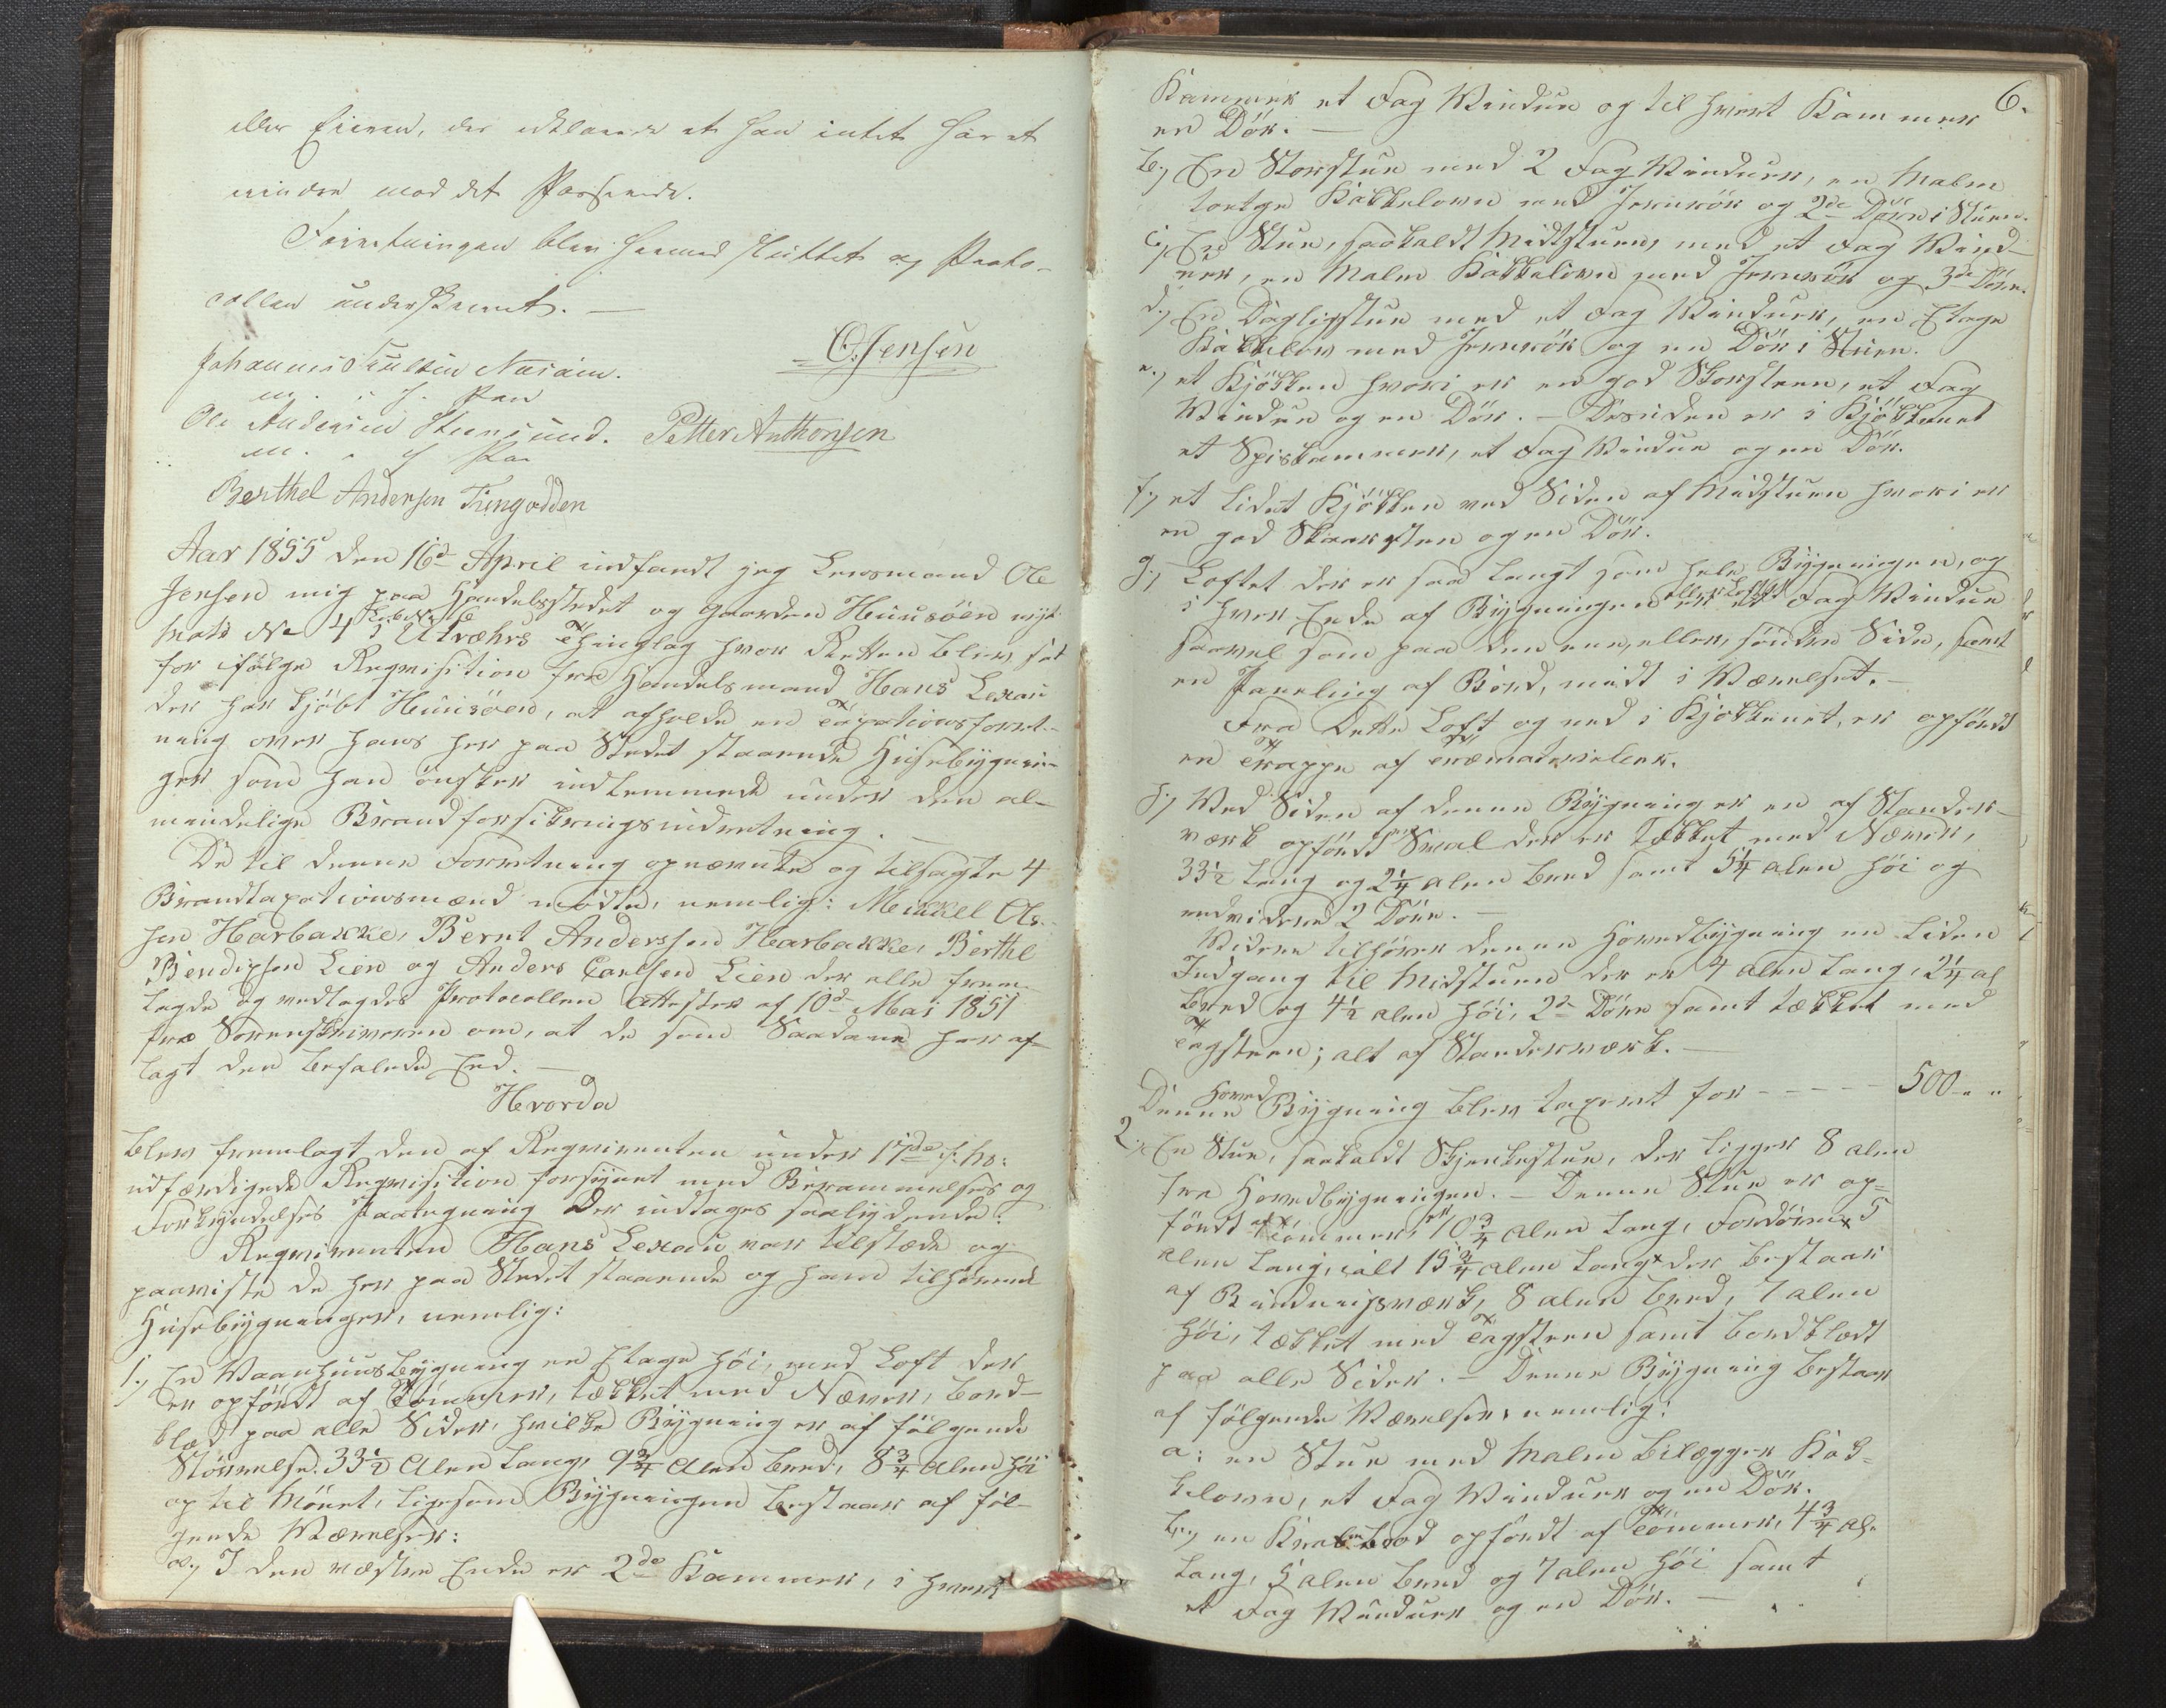 eller Eieren, der erklærede at han intet har at
erindre mod det Passerede.
Forretningen blev hermed sluttet og Proto-
collen underskrevet. —
O. Jensen
Johannes Poulsen
m. f. Pen
Ole Andersen Steensund. Petter Anthonsen
m. f. Pen
Berthel Andersen Tungodden
Aar 1855 den 16d April indfandt jeg Lensmand Ole
Jensen mig paa Handelsstedet og Gaarden Huusöen nye
Matr No 4 Löbe No 6 i Utvæhrs Thinglag hvor Retten blev sat
for ifølge Reqvisition fra Handelsmand Hans Lexau
der har kjöbt Huusöen, at afholde en Taxationsforret-
ning over hans her paa Stedet staaende Husebygnin-
ger som han önsker indlemmede under den al-
mindelige Brandforsikringsindretning. —
De til denne Forretning opnævnte og tilsagte 4
Brandtaxationsmænd mödte, nemlig: Mickel Ol-
sen Harbakke, Bernt Anderssen Harbakke, Berthel
Bendixsen Lien og Anders Carlsen Lien der alle frem-
lagde og vedlagdes Protocollen Attester af 10d Mai 1851
fra Sorenskriveren om, at de som Saadane har af-
lagt den befalede Eed. —
Hvorda
blev fremlagt den af Reqvirenten under 17de f. M:
udfærdigede Reqvisition forsynet med Berammelses og
Forkyndelses Paategning der indtages saalydende:
Reqvirenten Hans Lexau var tilstæde og
paaviste de her paa Stedet staaende og ham tilhörende
Husebygninger, nemlig:
1., En Vaanhuusbygning en Etage höi, med Loft der
er opfördt af Tömmer, tækket med Næver, bord-
klæd paa alle Sider, hvilke Bygning er af fölgende
Störrelse: 33½ Alen lang, 9¾ Alen bred, 8¾ Alen höi
op til Mönet, ligesom Bygningen bestaar af föl-
gende Værelser:
a., I den vestre Ende er 2de Kammer, i hvert
6.
Kammer et Fag Vindue og til hvert Kammer
en Dör. —
b., En Storstue med 2 Fag Vinduer, en Malm
Kakkelovn med Jernrör og 2de Döre i Stuen.
c., En Stue, saakaldt Midtstuen, med et Fag Vind-
uer, en Malm Kakkelovn med Jernrör og 3de Döre.
d., En Dagligstue med et Fag Vinduer, en Etage
Kakkelovn med Jernrör og en Dör i Stuen.
e., et Kjökken hvori er en god Skorsteen, et Fag
Vindue og en Dör. — Desuden er i Kjökkenet
et Spiskammer, et Fag Vindue og en Dör.
f., et lidet Kjökken ved Siden af Midstuen hvori er
en god Skorsten og en Dör.
g., Loftet der er saa langt som hele Bygningen, og
i hver Ende af Bygningen eller Loftet er et Fag Vindue
saavel som paa den ene, eller, söndre Side, samt
en Paneling af Bord, midt i Værelset. —
Fra dette Loft og ned i Kjökkenet, er opfördt
en Trappe af Træmaterialier.
h., Ved Siden af denne Bygning er en af Stander-
værk opfördt Sval der er tækket med Næver,
33½ lang og 2¼ Alen bred samt 5¼ Alen höi og
endvidere 2 Döre. —
Videre tilhörer denne Hovedbygning en liden
Indgang til Midstuen der er 4 Alen lang, 2¼ Al
bred og 4½ Alen höi, 2de Döre samt tækket med
Tagsteen; alt af Standerværk. —
Denne Hoved Bygning blev taxeret for - - - - - 500 „ „
2., En Stue, saakaldt Skjenkestue, der ligger 8 Alen
fra Hovedbygningen. — Denne Stue er op-
fördt af Tömmer, er 10¾ Alen lang, Fordören 5
Alen lang, ialt 15¾ Alen lang der bestaar
af Bindingsværk, 8 Alen bred, 7 Alen
höi, tækket med Tagsteen samt bordklædt
paa alle Sider. — Denne Bygning bestaar
af fölgende Værelser, nemlig:
a: en Stue med Malm Bilægger Kak-
kelovn, et Fag Vinduer og en Dör.
b., en Krambod opfördt af Tömmer, 4¾ Al.
lang, 5 Alen bred og 7 Alen höi samt
et Fag Vinduer og en Dör. —